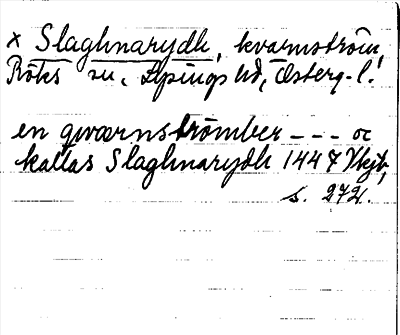 x Slaghnarydh, kvarnström,
Röks sn, Lysings hd, Österg.l.
en qwærnströmber - - - oc
kallas Slaghnarydh 1447 Vkjb,
s. 272.